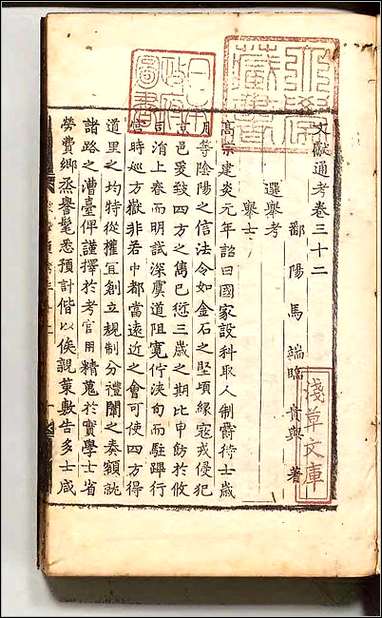 日本政府圖書
林氏藏書
文獻通考卷三十二
鄱陽馬端臨貴與著
淺草文庫
選舉考
舉士
高宗建炎元年詔曰國家設科取人制爵待士歲
月等陰陽之信法令如金石之堅頃緣寇戎侵犯
京邑爰致四方之雋已愆三歲之期比申飭於攸
司涓上春而明試深虞道阻寬佇浹旬而駐蹕行
宮時巡方嶽非若中都當遠近之會可使四方得
道里之均特從權宜創立規制分禮闈之奏額就
諸路之漕臺俾謹擇於考官用精蒐於實學士省
勞費鄉烝譽髦悉預計偕以俟親策敷告多士咸